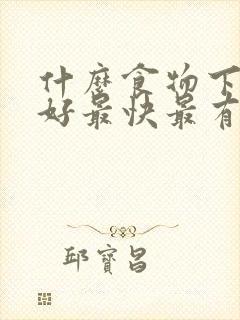 什麼食物下
好最快最有
邱寶昌